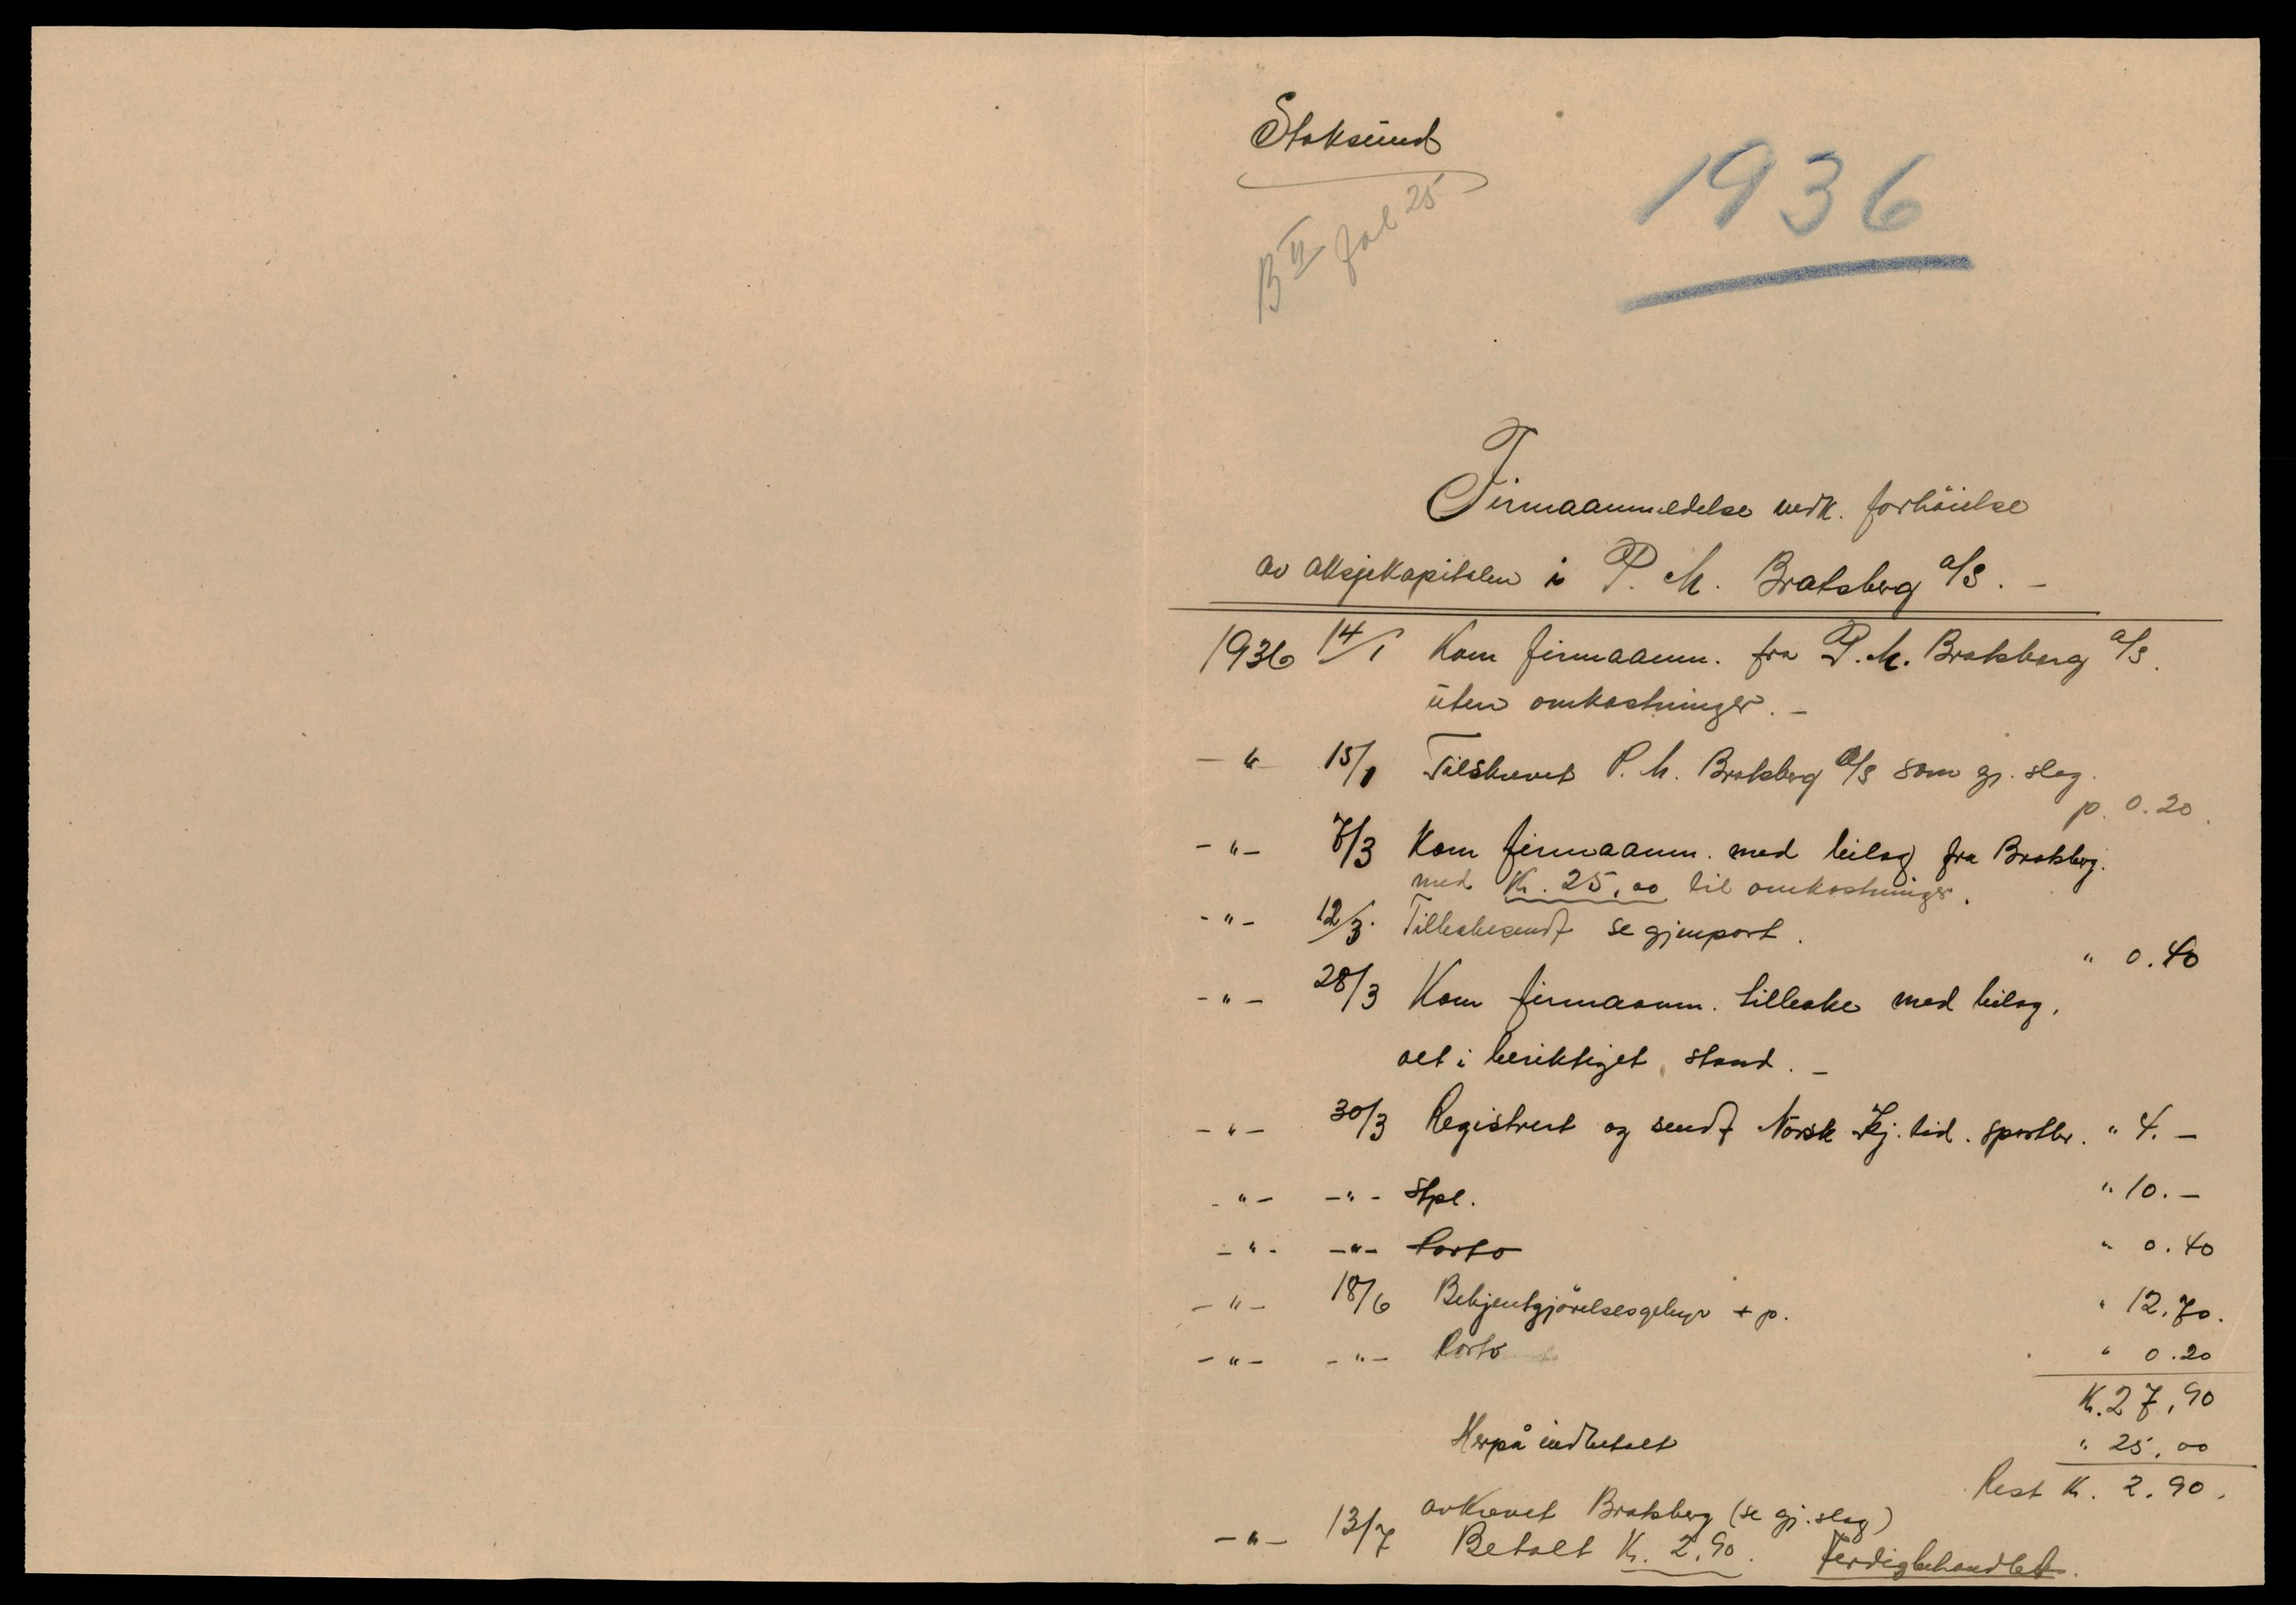 Stoksund
B II fol 25
1936
Firmaanmeldelse vedk. forhöielse
av aksjekapitalen i P. M. Bratsberg a/s. –
1936 14/1 Kom firmaanm. fra P. M. Bratsberg a/s.
uten omkostninger. –
– " 15/1 Tilskrevet P. M. Bratsberg a/s som gj. slag.
p. 0.20.
– " – 7/3 Kom firmaanm. med bilag fra Bratsberg.
med Kr. 25,00 til omkostninger.
- " - 12/3. Tilbakesendt se gjenpart.
" 0.40
- " – 28/3 Kom firmaanm. tilbake med bilag,
alt i beriktiget stand. –
– " – 30/3 Registrert og sendt Norsk Kj. tid. sportler. " 4. –
- " – – " - Stpl. " 10. –
– " - – " – Porto " 0.40
– " – 18/6 Bekjentgjörelsesgebyr + p. " 12.70.
– " – - " – Porto " 0.20
Kr. 27,90
Herpå indbetalt " 25,00
Rest Kr. 2.90.
avkrevet Bratsberg (se gj. slag)
– " – 13/7 Betalt Kr. 2,90. Ferdigbehandlet.